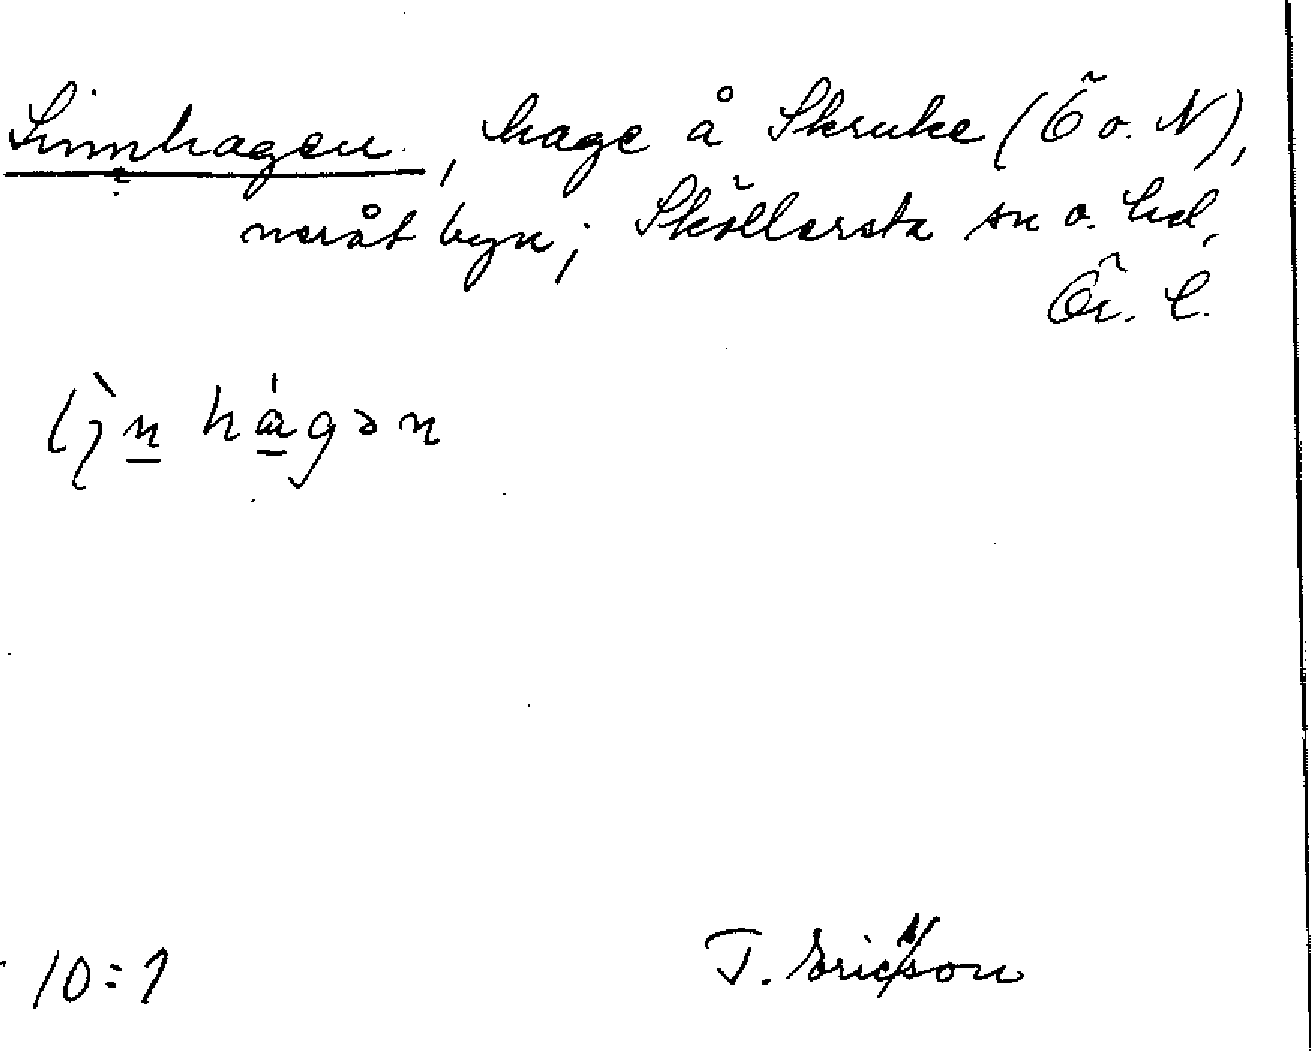 Linnhagen, hage å Skruke (Ö o. N),
neråt byn; Sköllersta sn o. hd,
Ör. l.
10:1
T. Ericsson